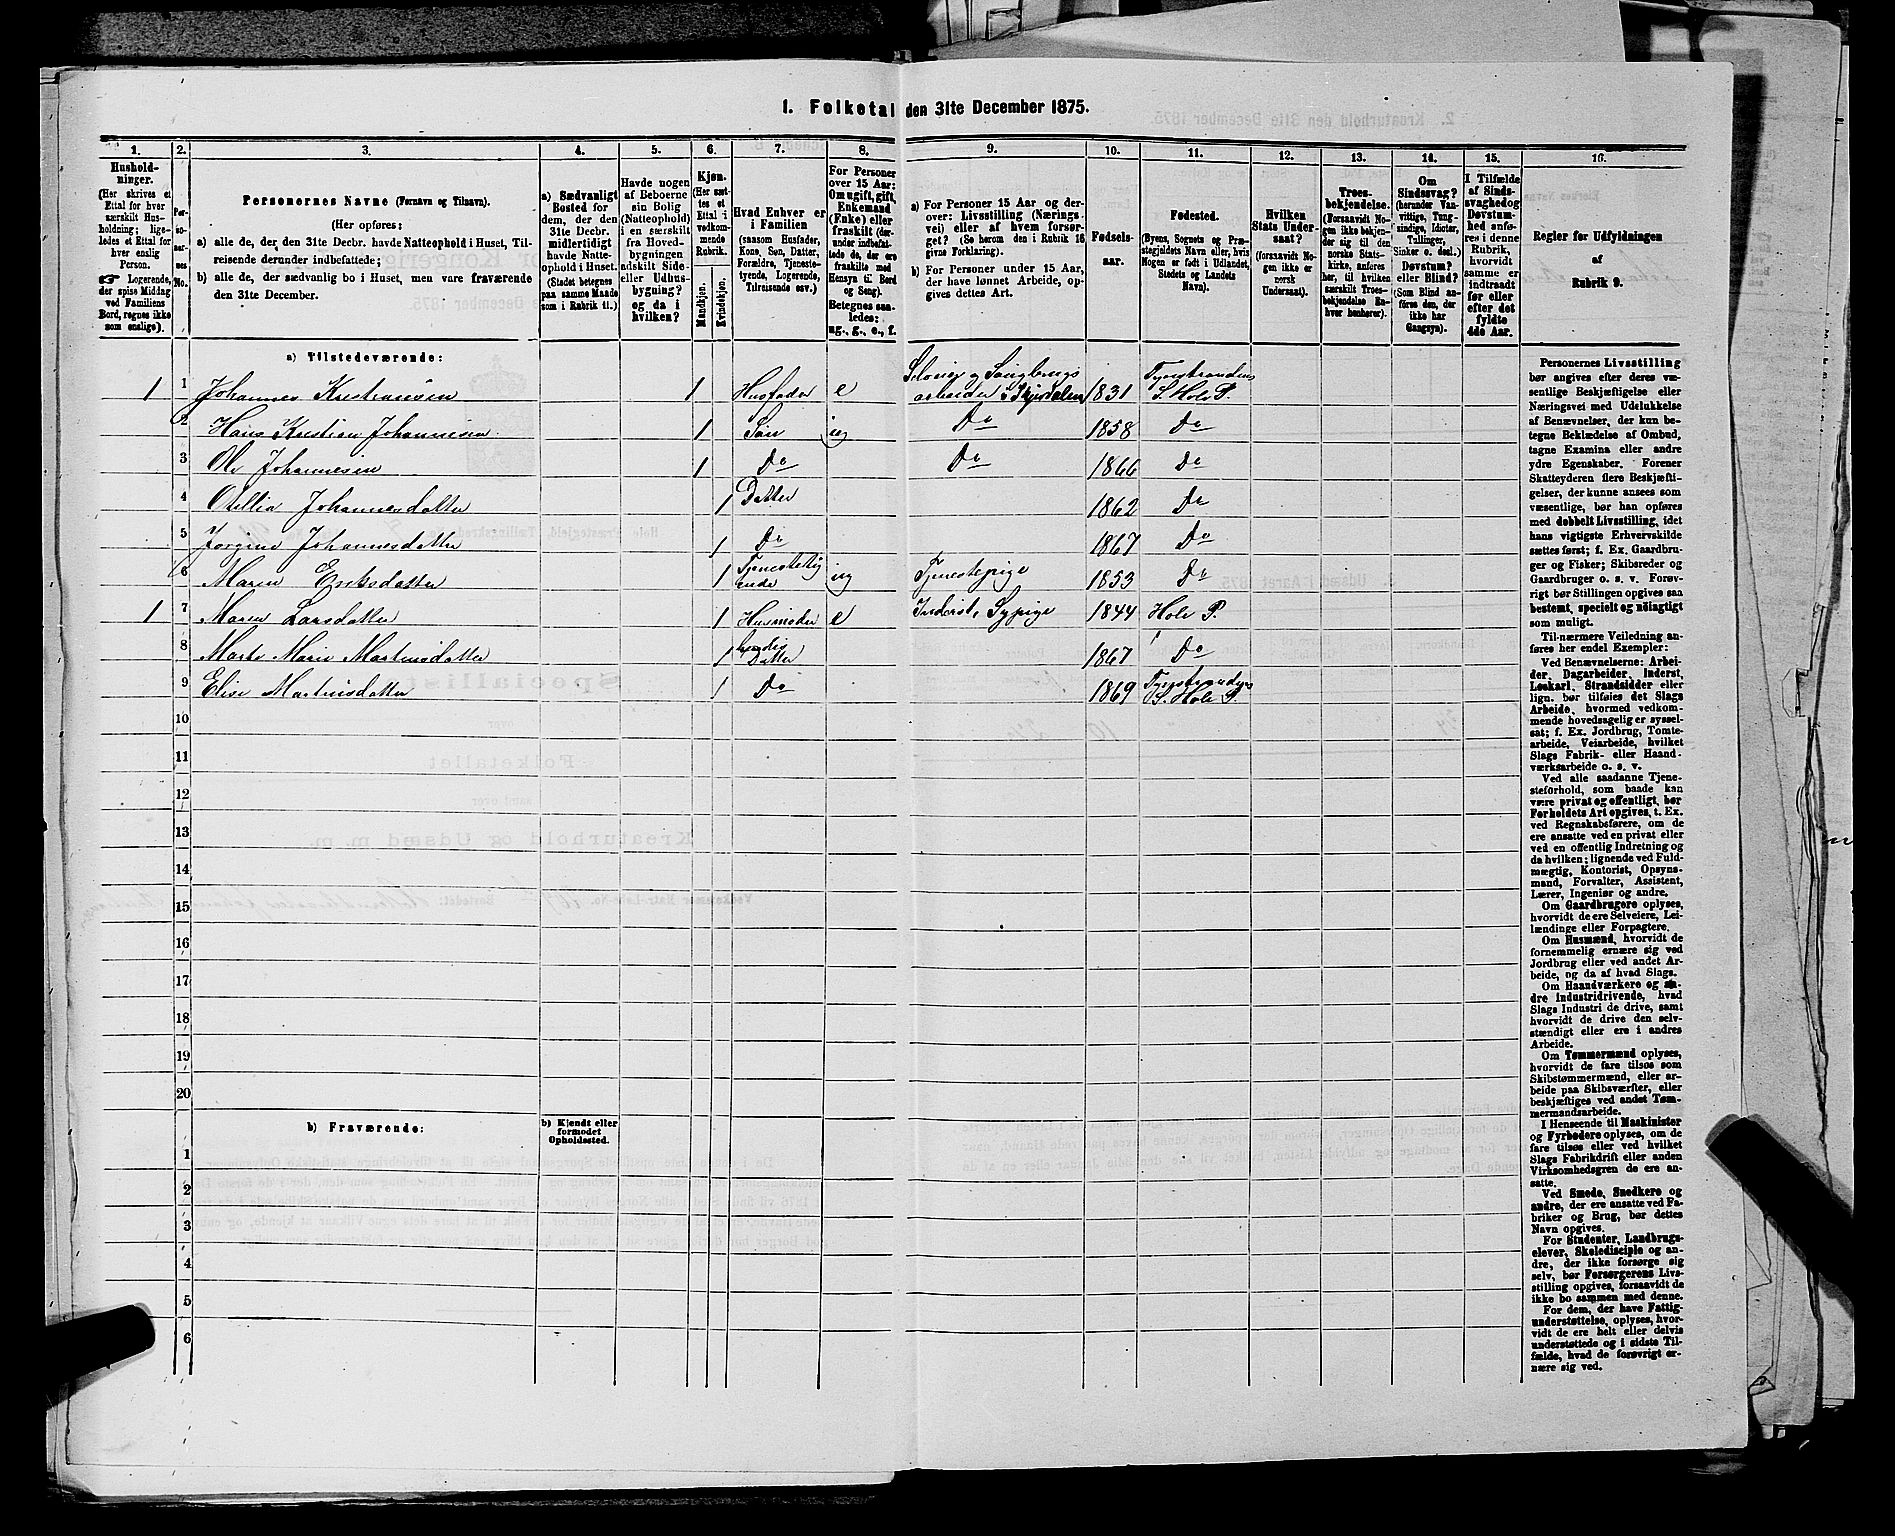 1. Folketal den 31te December 1875.
1. 2. 3. 4. 5. 6. 7. 8. 9. 10. 11. 12. 13. 14. 15. 16.
Hushold-
ninger.
(Her skrives et
Ettal for hver
særskilt Hus-
holdning; lige-
ledes et Ettal for
hver enslig
Person.
Logerende,
der spise Middag
ved Familiens
Bord, regnes ikke
som enslige).
Personernes No.
Personernes Navne (Fornavn og Tilnavn).
(Her opføres:
a) alle de, der den 31te Decbr. havde Natteophold i Huset, Til-
reisende derunder indbefattede;
b) alle de, der sædvanlig bo i Huset, men vare fraværende
den 31te December.
a) Sædvanligt
Bosted for
dem, der den
31te Decbr.
midlertidigt
havde Natte-
ophold i Huset.
(Stedet betegnes
paa samme Maade
som i Rubrik 11.)
Havde nogen
af Beboerne
sin Bolig
(Natteophold)
i en særskilt
fra Hoved-
bygningen
adskilt Side-
eller Udhus-
bygning?
og da i
hvilken?
Kjøn.
(Her sæt-
tes et
Ettal i
vedkom-
mende
Rubrik.
Mandkjøn.
Kvindekjøn.
Hvad Enhver er
i Familien
(saasom Husfader,
Kone, Søn, Datter,
Forældre, Tjeneste-
tyende, Logerende,
Tilreisende osv.)
For Personer
over 15 Aar:
Om ugift, gift,
Enkemand
(Enke) eller
fraskilt (der-
under indbefat-
tede de, der ere
fraskilte med
Hensyn til Bord
og Seng).
Betegnes saa-
ledes:
ug., g., e., f.
a) For Personer 15 Aar og der-
over: Livsstilling (Nærings-
vei) eller af hvem forsør-
get? (Se herom den i Rubrik 16
givne Forklaring).
b) For Personer under 15 Aar,
der have lønnet Arbeide, op-
gives dettes Art.
Fødsels-
aar.
Fødested.
(Byens, Sognets og Præ-
stegjeldets Navn eller, hvis
Nogen er født i Udlandet,
Stedets og Landets
Navn).
Hvilken
Stats Under-
saat?
(forsaavidt No-
gen ikke er
norsk
Undersaat).
Troes-
bekjendelse.
(Forsaavidt No-
gen ikke bekjen-
der sig til den
norske Stats-
kirke, anføres
her, til hvilken
særskilt Troes-
bekjendelse En-
hver henhører).
Om
Sindssvag?
(herunder Van-
vittige, Tung-
sindige, Idioter,
Tullinger,
Sinker o. desl.)
Døvstum?
eller Blind?
(Som Blind an-
føres den, der
ikke har
Gangsyn).
I Tilfælde
af Sinds-
svaghed og
Døvstum-
hed anfø-
res i denne
Rubrik,
hvorvidt
samme er
indtraadt
før eller
efter det
fyldte
4de Aar.
Regler for Udfyldningen
af
Rubrik 9.
a) Tilstedeværende:
1 1 Johannes Kristiansen 1 Husfader e Seloeier og Sangbrugs arbeider i Skjærdalen 1831 Tyristrandens S. Hole P.
2 Hans Kristian Johannesen 1 Søn ug Do 1858 Do
3 Ole Johannesen 1 Do Do 1866 Do
4 Otellia Johannesdatter 1 Datter 1862 Do
5 Jorgine Johannesdatter 1 Do 1867 Do
6 Maren Eriksdatter 1 Tjenestetyende ug Tjenestepige 1853 Do
1 7 Maren Larsdatter 1 Husmoder e Inderst, Sypige 1844 Hole P.
8 Marte Marie Martinsdatter 1 hendes Datter 1867 Do
9 Elise Martinsdatter 1 Do 1869 Tyristrandens S. Hole P.
10
11
12
13
14
15
16
17
18
19
20
b) Fraværende:
b) Kjendt eller
formodet
Opholdssted.
1
2
3
4
5
6
Personernes Livsstilling
bør angives efter deres væ-
sentlige Beskjæftigelse eller
Næringsvei med Udelukkelse
af Benævnelser, der kun be-
tegne Beklædelse af Ombud,
tagne Examina eller andre
ydre Egenskaber. Forener
Skatteyderen flere Beskjæfti-
gelser, der kunne ansees som
væsentlige, bør han opføres
med dobbelt Livsstilling, idet
hans vigtigste Erhvervskilde
sættes først; f. Ex. Gaardbru-
ger og Fisker; Skibsreder og
Gaardbruger o. s. v. Forøv-
rigt bør Stillingen opgives saa
bestemt, specielt og nøiagtigt
som muligt.
Til nærmere Veiledning an-
føres her endel Exempler:
Ved Benævnelserne: Arbei-
der, Dagarbeider, Inderst,
Løskarl, Strandsidder eller
lign. bør tilføies det Slags
Arbeide, hvormed vedkom-
mende hovedsagelig er syssel-
sat; f. Ex. Jordbrug, Tomte-
arbeide, Veiarbeide, hvilket
Slags Fabrik- eller Haand-
værksarbeide o. s. v.
Ved alle saadanne Tjene-
steforhold, som baade kan
være privat og offentligt, bør
Forholdets Art opgives, t. Ex.
ved Regnskabsførere, om de
ere ansatte ved en privat eller
ved en offentlig Indretning og
da hvilken; lignende ved Fuld-
mægtig, Kontorist, Opsyns-
mand, Forvalter, Assistent,
Lærer, Ingeniør og andre.
Om Gaardbrugere oplyses,
hvorvidt de ere Selveiere, Lei-
lændinge eller Forpagtere.
Om Husmænd, hvorvidt de
fornemmelig ernære sig ved
Jordbrug eller ved andet Ar-
beide, og da af hvad Slags.
Om Haandværkere og an-
dre industridrivende, hvad
Slags Industri de drive, samt
hvorvidt de drive den selv-
stændigt eller ere i andres
Arbeide.
Om Tømmermænd oplyses,
hvorvidt de fare tilsøs som
Skibstømmermænd, eller ar-
beide paa Skibsværfter, eller
beskjæftiges ved andet Tøm-
mermandsarbeide.
I Henseende til Maskinister
og Fyrbødere oplyses, om de
fare tilsøs eller ved hvilket
Slags Fabrikdrift eller anden
Virksomhedsgren de ere an-
satte.
Ved Smede, Snedkere og
andre, der ere ansatte ved Fa-
briker og Brug, bør dettes
Navn opgives.
For Studenter, Landbrugs-
elever, Skoledisciple og an-
dre, der ikke forsørge sig
selv, bør Forsørgerens Livs-
stilling opgives, forsaavidt de
ikke bo sammen med denne.
For dem, der have Fattig-
understøttelse, oplyses, hvor-
vidt de ere helt eller delvis
understøttede og i sidste Til-
fælde, hvad de forøvrigt er-
nære sig ved.